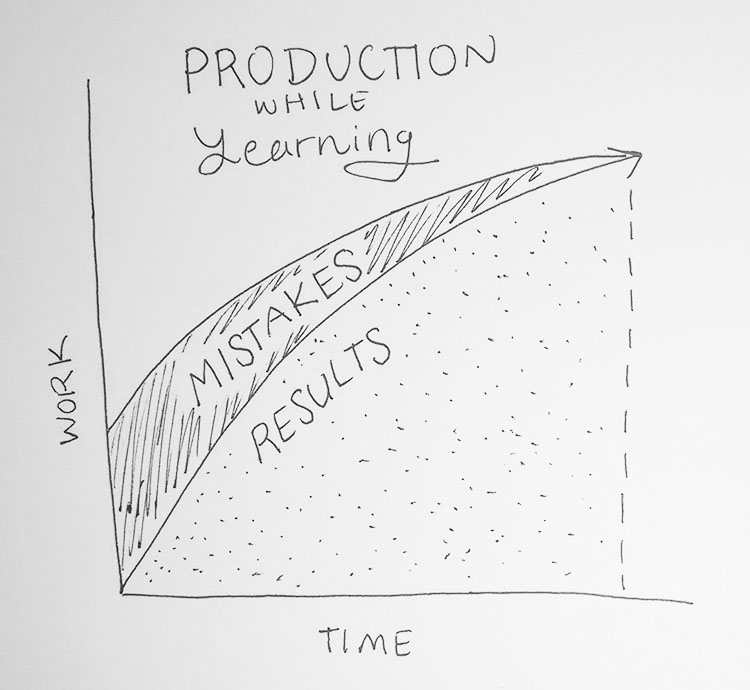 PRODUCTION
WHILE
Learning
MISTAKES
RESULTS
WORK
TIME